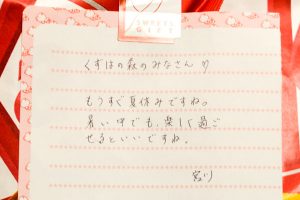 SWEETS
GIFT
くずはの森のみなさんへ
もうすぐ夏休みですね。
暑い中でも、楽しく過ご
せるといいですね。
宮川